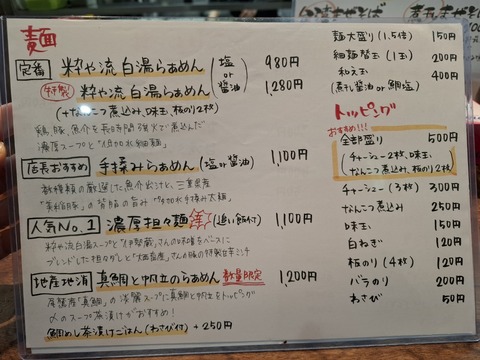 麺
定番 粋や流 白湯らぁめん (塩 or 醤油) 980円
特製 粋や流 白湯らぁめん 1,280円
(+なんこつ煮込み、味玉、板のり2枚)
鶏、豚、魚介を長時間強火で煮込んだ
濃厚スープと
店長おすすめ 手揉みらぁめん (塩 or 醤油) 1,100円
の厳選した魚介出汁と、三重県産
の背脂の旨み
人気No.1 濃厚担々麺 (追い飯付) 1,100円
粋や流白湯スープと さんの味噌をベースに
ブレンドした担々ダレと さんの豚の特製肉みそミンチ
地産地消 真鯛と帆立のらぁめん 数量限定 1,200円
産「真鯛」の淡麗スープに真鯛と帆立をトッピング
〆のスープ茶漬けがおすすめ!
鯛めし茶漬けごはん(わさび付) +250円
麺大盛り (1.5倍) 150円
細麺替玉 (1玉) 200円
和え玉 400円
(煮干し醤油 or 鯛塩)
トッピング
おすすめ!!!
全部盛り 500円
(チャーシュー2枚、味玉、
なんこつ煮込み、板のり2枚)
チャーシュー (3枚) 300円
なんこつ煮込み 250円
味玉 150円
白ねぎ 120円
板のり (4枚) 120円
バラのり 200円
わさび 50円